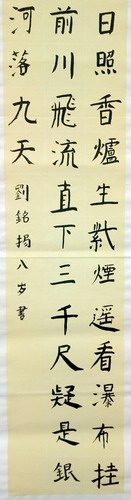 日照香爐生紫煙遥看瀑布挂
前川飛流直下三千尺疑是銀
河落九天劉銘揚八岁書